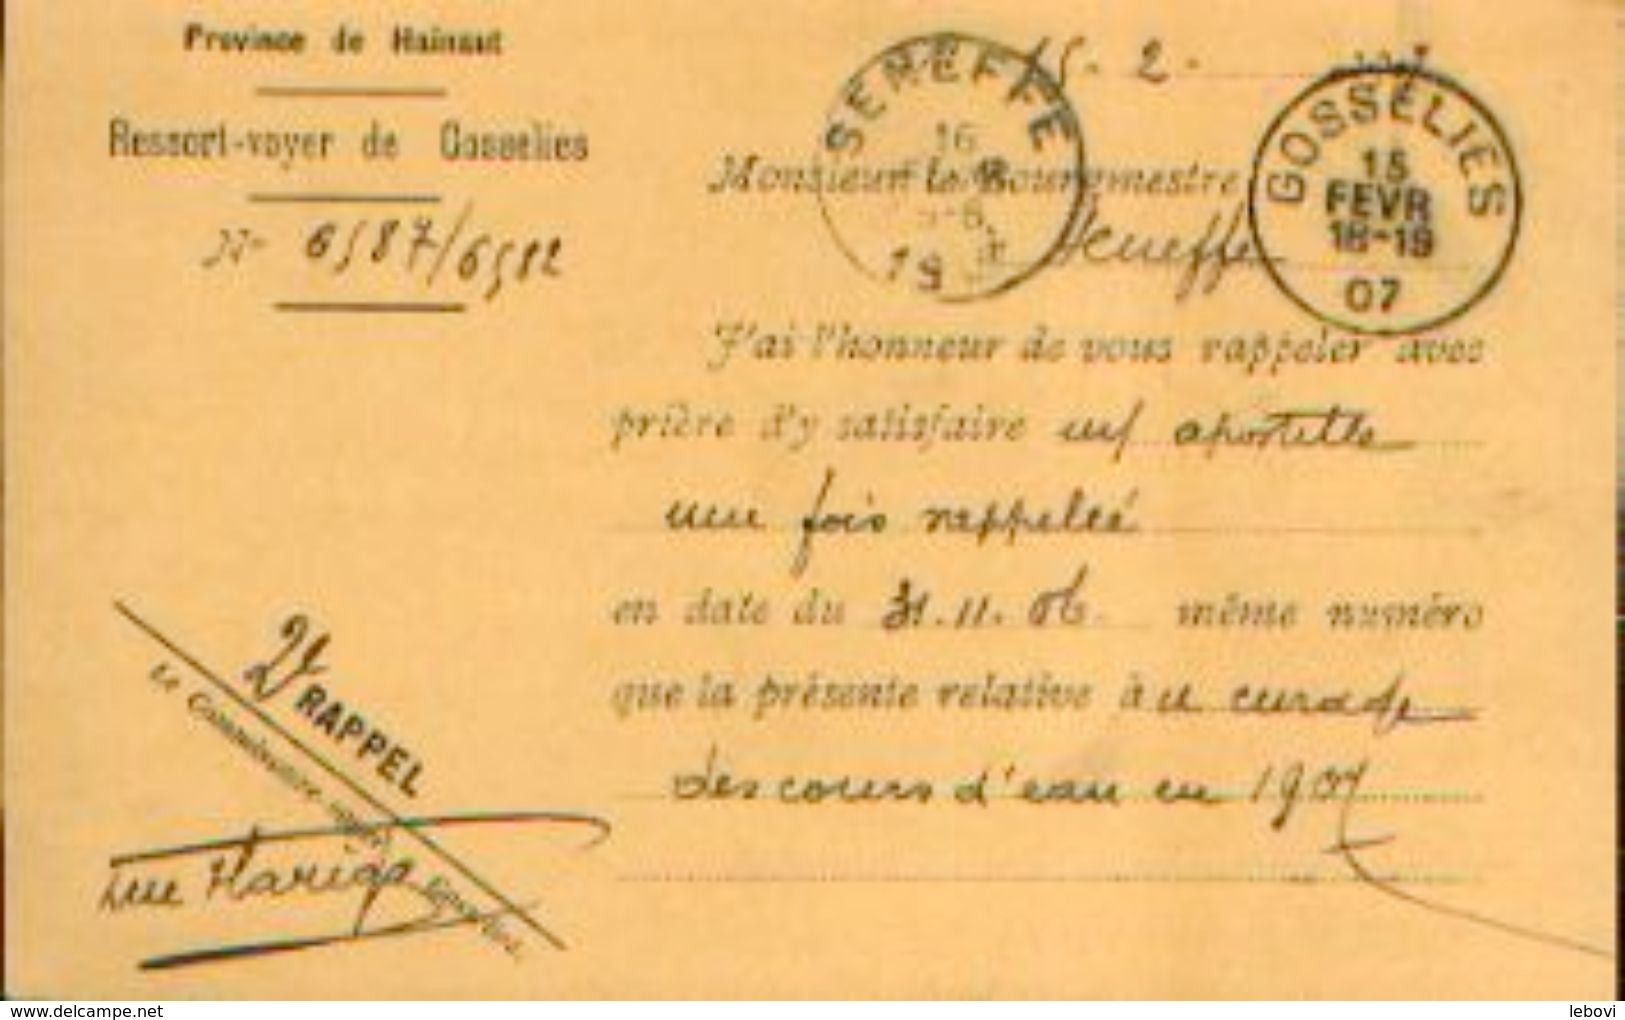 Province de Hainaut
Ressort-voyer de Gosselies
N° 6587/6582
15 - 2 - 1907
SENEFFE
16
5-6
19
GOSSELIES
15
FEVR
18-19
07
Monsieur le Bourgmestre
Seneffe
J'ai l'honneur de vous rappeler avec
prière d'y satisfaire apostille
une fois rappelée
en date du 31.11.06. même numéro
que la présente relative à u curage
des cours d'eau en 1907
2e RAPPEL
Le Commissaire voyer,
delcampe.net
lebovi